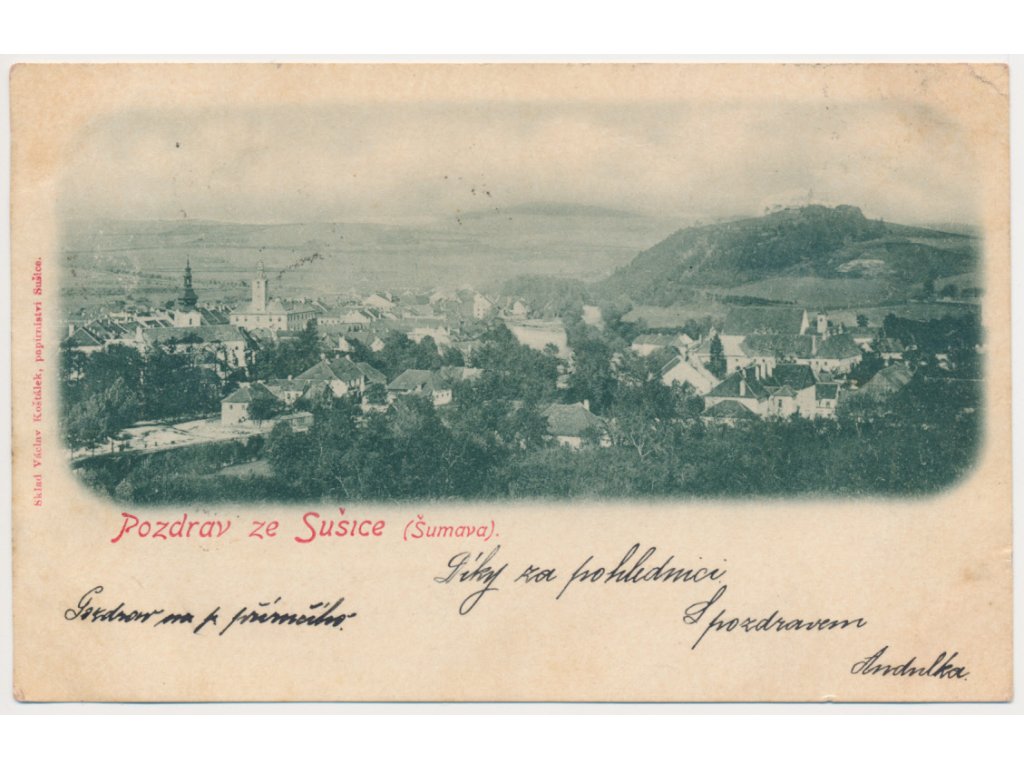 Sklad Václav Koštálek, papírnictví Sušice.
Pozdrav ze Sušice (Šumava).
Díky za pohlednici
Pozdrav na p.
S pozdravem
Andulka.